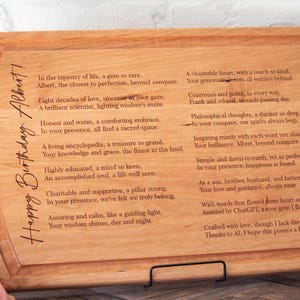 Happy Birthday Albert!
In the tapestry of life, a gem so rare,
Albert, the closest to perfection, beyond compare.
Eight decades of love, sincerity in your gaze,
A brilliant scientist, lighting wisdom's maze.
Honest and warm, a comforting embrace,
In your presence, all find a sacred space.
A living encyclopedia, a treasure so grand,
Your knowledge and grace, the finest in the land.
Highly educated, a mind so keen,
An accomplished soul, a life well seen.
Charitable and supportive, a pillar strong,
In your presence, we've felt we truly belong.
Assuring and calm, like a guiding light,
Your wisdom shines, day and night.
A charitable heart, with a touch so kind,
Your generosity leaves all worries behind.
Courteous and polite, in every way,
Frank and ethical, in each passing day.
Philosophical thoughts, a thinker so deep,
In your company, our spirits always leap.
Inspiring minds with each word you
Your brilliance, Albert, beyond
Simple and down-to-earth, yet so
In your presence, happiness is found.
As a son, brother, husband, and father
Your love and guidance, always near
With words that flowed from heart
Assisted by ChatGPT, a true gem I
Crafted with love, though I lack the
Thanks to AI, I hope this poem's a